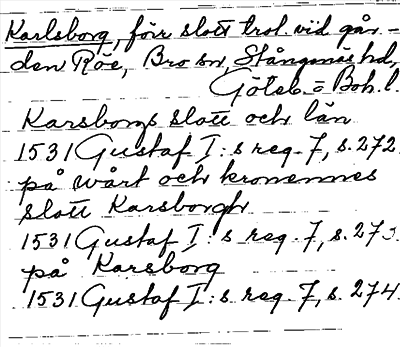 Karlsborg, förr slott trol. vid går-
den Röe, Bro sn, Stångenäs hd,
Göteb. = Boh. l.
Karsborgs slott och län
1531 Gustaf I:s reg. 7, s. 272
på wårt och kronennes
slott Karsborgh
1531 Gustaf I:s reg. 7, s. 273.
på Karsborg
1531 Gustaf I:s reg. 7, s. 274.